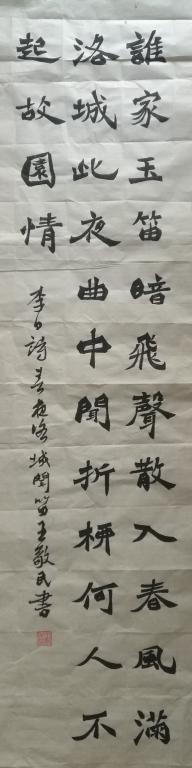 誰家玉笛暗飛聲散入春風滿
洛城此夜曲中聞折柳何人不
起故園情
李白詩春夜洛城聞笛王敬民書